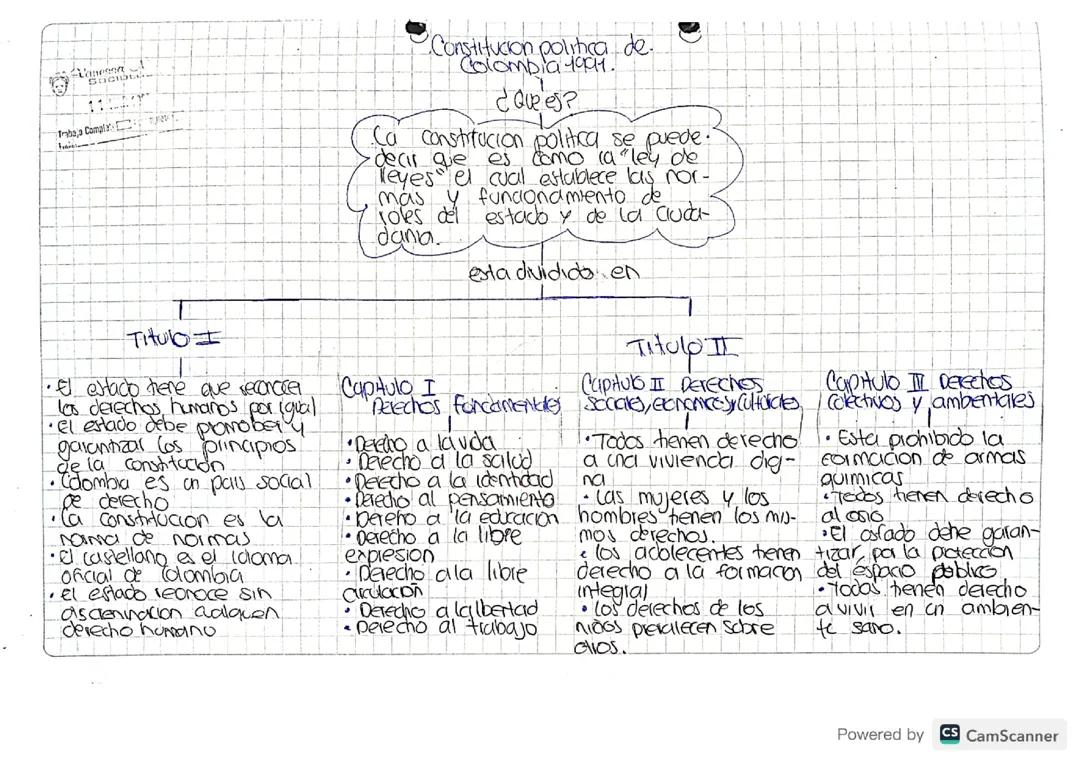 Constitucion politica de
Colombia 1991.
¿Que es?
La constitucion politica se puede
decir que es como la "ley de
leyes" el cual establece las nor-
mas y funcionamiento de
roles del estado y de la ciuda-
dania.
esta dividido en
Titulo I
• El estado tiene que reconocer
los derechos humanos por igual
• El estado debe promober y
garantizar los principios
de la constitucion
• Colombia es un pais social
de derecho
• La constitucion es la
norma de normas
• El castellano es el idioma
oficial de Colombia
• el estado reconoce sin
derecho humano
Titulo II
Capitulo I
Derechos fundamentales
• Derecho a la vida
• Derecho a la salud
• Derecho a la identidad
• Derecho al pensamiento
• Derecho a la educacion
• Derecho a la libre
expresion
• Derecho a la libre
circulacion
• Derecho a la libertad
• Derecho al trabajo
Capitulo II Derechos
sociales, economicos y culturales
• Todos tienen derecho
a una vivienda dig-
na
• Las mujeres y los
hombres tienen los mis-
mos derechos.
• los adolecentes tienen
derecho a la formacion
integral
• Los derechos de los
niños prevalecen sobre
otros.
Capitulo III Derechos
Colectivos y ambientales
• Esta prohibido la
formacion de armas
quimicas
• Todos tienen derecho
al osio
• El estado debe garan-
tizar por la proteccion
del espacio publico
• Todos tienen derecho
a vivir en un ambien-
te sano.
Trabajo
Powered by CS CamScanner